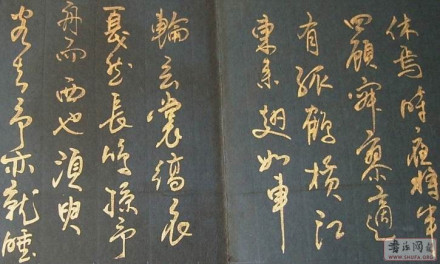 休焉時夜將半
四顧寂寥適
有孤鶴橫江
東來翅如車
輪玄裳縞衣
戛然長鳴掠予
舟而西也須臾
客去予亦就睡